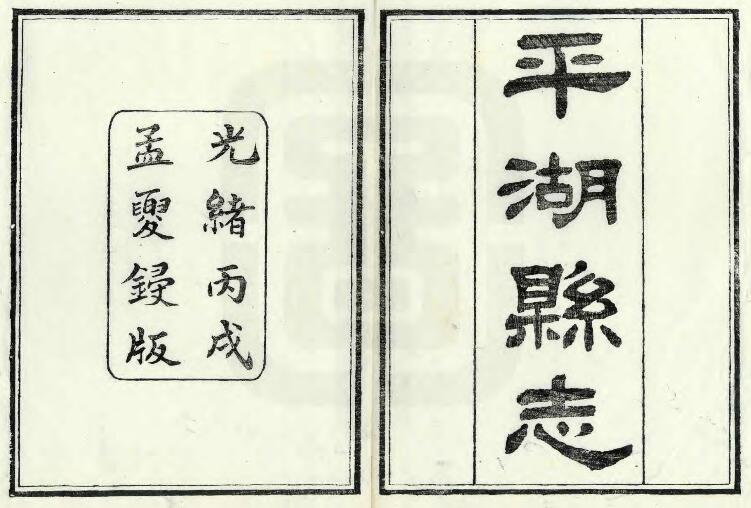 平湖縣志
光緒丙戌
孟夏鋟版